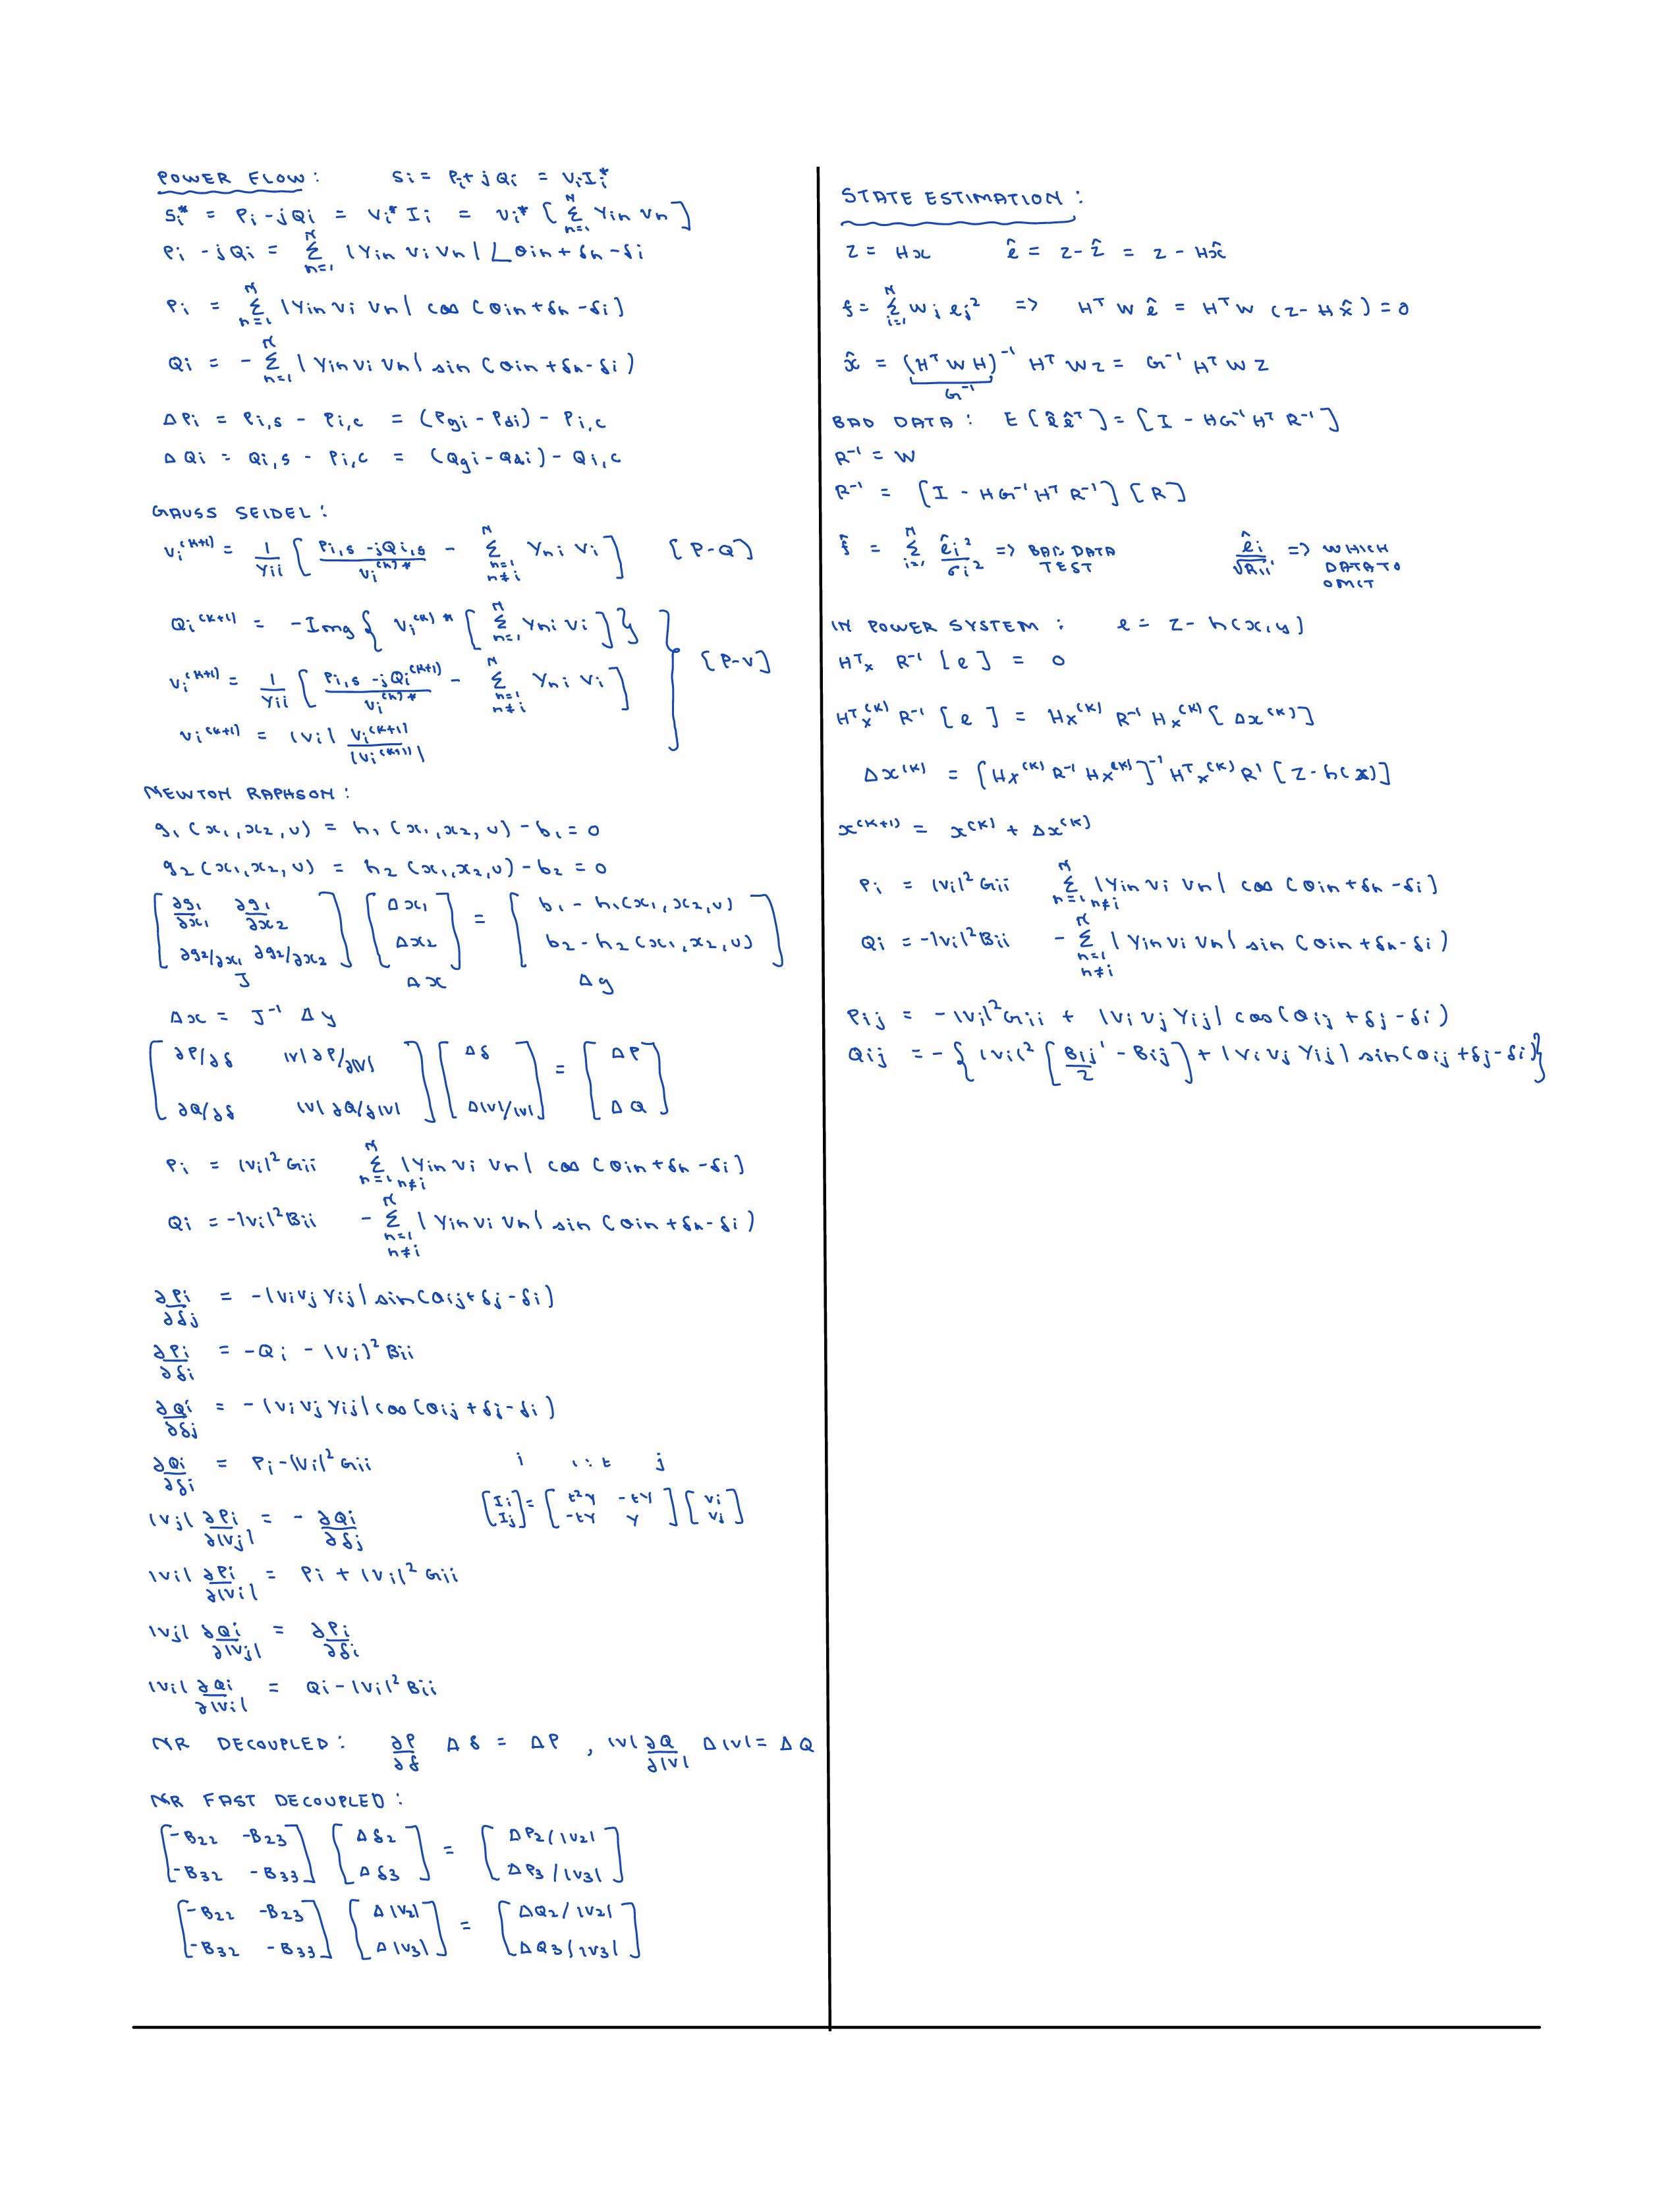 POWER FLOW: Si = Pi + jQi = ViIi*
Si* = Pi - jQi = Vi* Ii = Vi* [ Σ_{n=1}^{N} Yin Vn ]
Pi - jQi = Σ_{n=1}^{N} |Yin Vi Vn| ∠θin + δn - δi
Pi = Σ_{n=1}^{N} |Yin Vi Vn| cos (θin + δn - δi)
Qi = - Σ_{n=1}^{N} |Yin Vi Vn| sin (θin + δn - δi)
ΔPi = Pi,s - Pi,c = (Pgi - Pdi) - Pi,c
ΔQi = Qi,s - Pi,c = (Qgi - Qdi) - Qi,c
GAUSS SEIDEL:
Vi^(k+1) = 1/Yii [ (Pi,s - jQi,s)/Vi^(k)* - Σ_{n=1, n≠i}^{N} Yni Vi ] [P-Q]
Qi^(k+1) = -Img { Vi^(k)* [ Σ_{n=1}^{N} Yni Vi ] }
Vi^(k+1) = 1/Yii [ (Pi,s - jQi^(k+1))/Vi^(k)* - Σ_{n=1, n≠i}^{N} Yni Vi ] [P-V]
Vi^(k+1) = |Vi| Vi^(k+1)/|Vi^(k+1)|
NEWTON RAPHSON:
g1(x1,x2,u) = h1(x1,x2,u) - b1 = 0
g2(x1,x2,u) = h2(x1,x2,u) - b2 = 0
[ ∂g1/∂x1 ∂g1/∂x2 ] [ Δx1 ] = [ b1 - h1(x1,x2,u) ]
[ ∂g2/∂x1 ∂g2/∂x2 ] [ Δx2 ] [ b2 - h2(x1,x2,u) ]
J Δx Δg
Δx = J^-1 Δy
[ ∂P/∂δ |V|∂P/∂|V| ] [ Δδ ] = [ ΔP ]
[ ∂Q/∂δ |V|∂Q/∂|V| ] [ Δ|V|/|V| ] [ ΔQ ]
Pi = |Vi|² Gii Σ_{n=1 n≠i}^{N} |Yin Vi Vn| cos (θin + δn - δi)
Qi = -|Vi|² Bii - Σ_{n=1 n≠i}^{N} |Yin Vi Vn| sin (θin + δn - δi)
∂Pi/∂δj = -|ViVj Yij| sin(θij + δj - δi)
∂Pi/∂δi = -Qi - |Vi|² Bii
∂Qi/∂δj = -|ViVj Yij| cos(θij + δj - δi)
∂Qi/∂δi = Pi - |Vi|² Gii i 1:t j
[ Ii ] = [ t²Y -tY ] [ Vi ]
[ Ij ] [ -tY Y ] [ Vj ]
|Vj| ∂Pi/∂|Vj| = - ∂Qi/∂δj
|Vi| ∂Pi/∂|Vi| = Pi + |Vi|² Gii
|Vj| ∂Qi/∂|Vj| = ∂Pi/∂δi
|Vi| ∂Qi/∂|Vi| = Qi - |Vi|² Bii
NR DECOUPLED: ∂P/∂δ Δδ = ΔP , |V| ∂Q/∂|V| Δ|V| = ΔQ
NR FAST DECOUPLED:
[ -B22 -B23 ] [ Δδ2 ] = [ ΔP2/|V2| ]
[ -B32 -B33 ] [ Δδ3 ] [ ΔP3/|V3| ]
[ -B22 -B23 ] [ Δ|V2| ] = [ ΔQ2/|V2| ]
[ -B32 -B33 ] [ Δ|V3| ] [ ΔQ3/|V3| ]
STATE ESTIMATION:
z = Hx ê = z - ẑ = z - Hx̂
f = Σ_{i=1}^{N} wj ej² => H^T W ê = H^T W (z - Hx̂) = 0
x̂ = (H^T W H)^-1 H^T W z = G^-1 H^T W z
G^-1
BAD DATA: E[ê ê^T] = [I - HG^-1 H^T R^-1]
R^-1 = W
R^-1 = [I - HG^-1 H^T R^-1] [R]
f̂ = Σ_{i=1}^{N} êi²/σi² => BAD DATA TEST êi/√Rii' => WHICH DATA TO OMIT
IN POWER SYSTEM: e = z - h(x,y)
H^T x R^-1 [e] = 0
H^T x^(k) R^-1 [e] = Hx^(k) R^-1 Hx^(k) [Δx^(k)]
Δx^(k) = [Hx^(k) R^-1 Hx^(k)]^-1 H^T x^(k) R^1 [z - h(x)]
x^(k+1) = x^(k) + Δx^(k)
Pi = |Vi|² Gii Σ_{n=1 n≠i}^{N} |Yin Vi Vn| cos (θin + δn - δi)
Qi = -|Vi|² Bii - Σ_{n=1 n≠i}^{N} |Yin Vi Vn| sin (θin + δn - δi)
Pij = -|Vi|² Gii + |Vi Vj Yij| cos(θij + δj - δi)
Qij = -{ |Vi|² [ Bij'/2 - Bij ] + |Vi Vj Yij| sin(θij + δj - δi) }